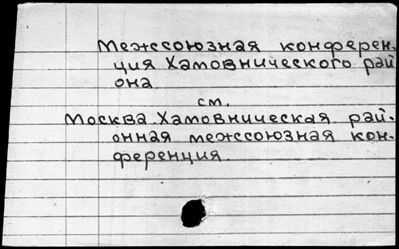 Межсоюзная конферен-
ция Хамовнического рай
она
см.
Москва. Хамовническая рай-
онная межсоюзная кон-
ференция.